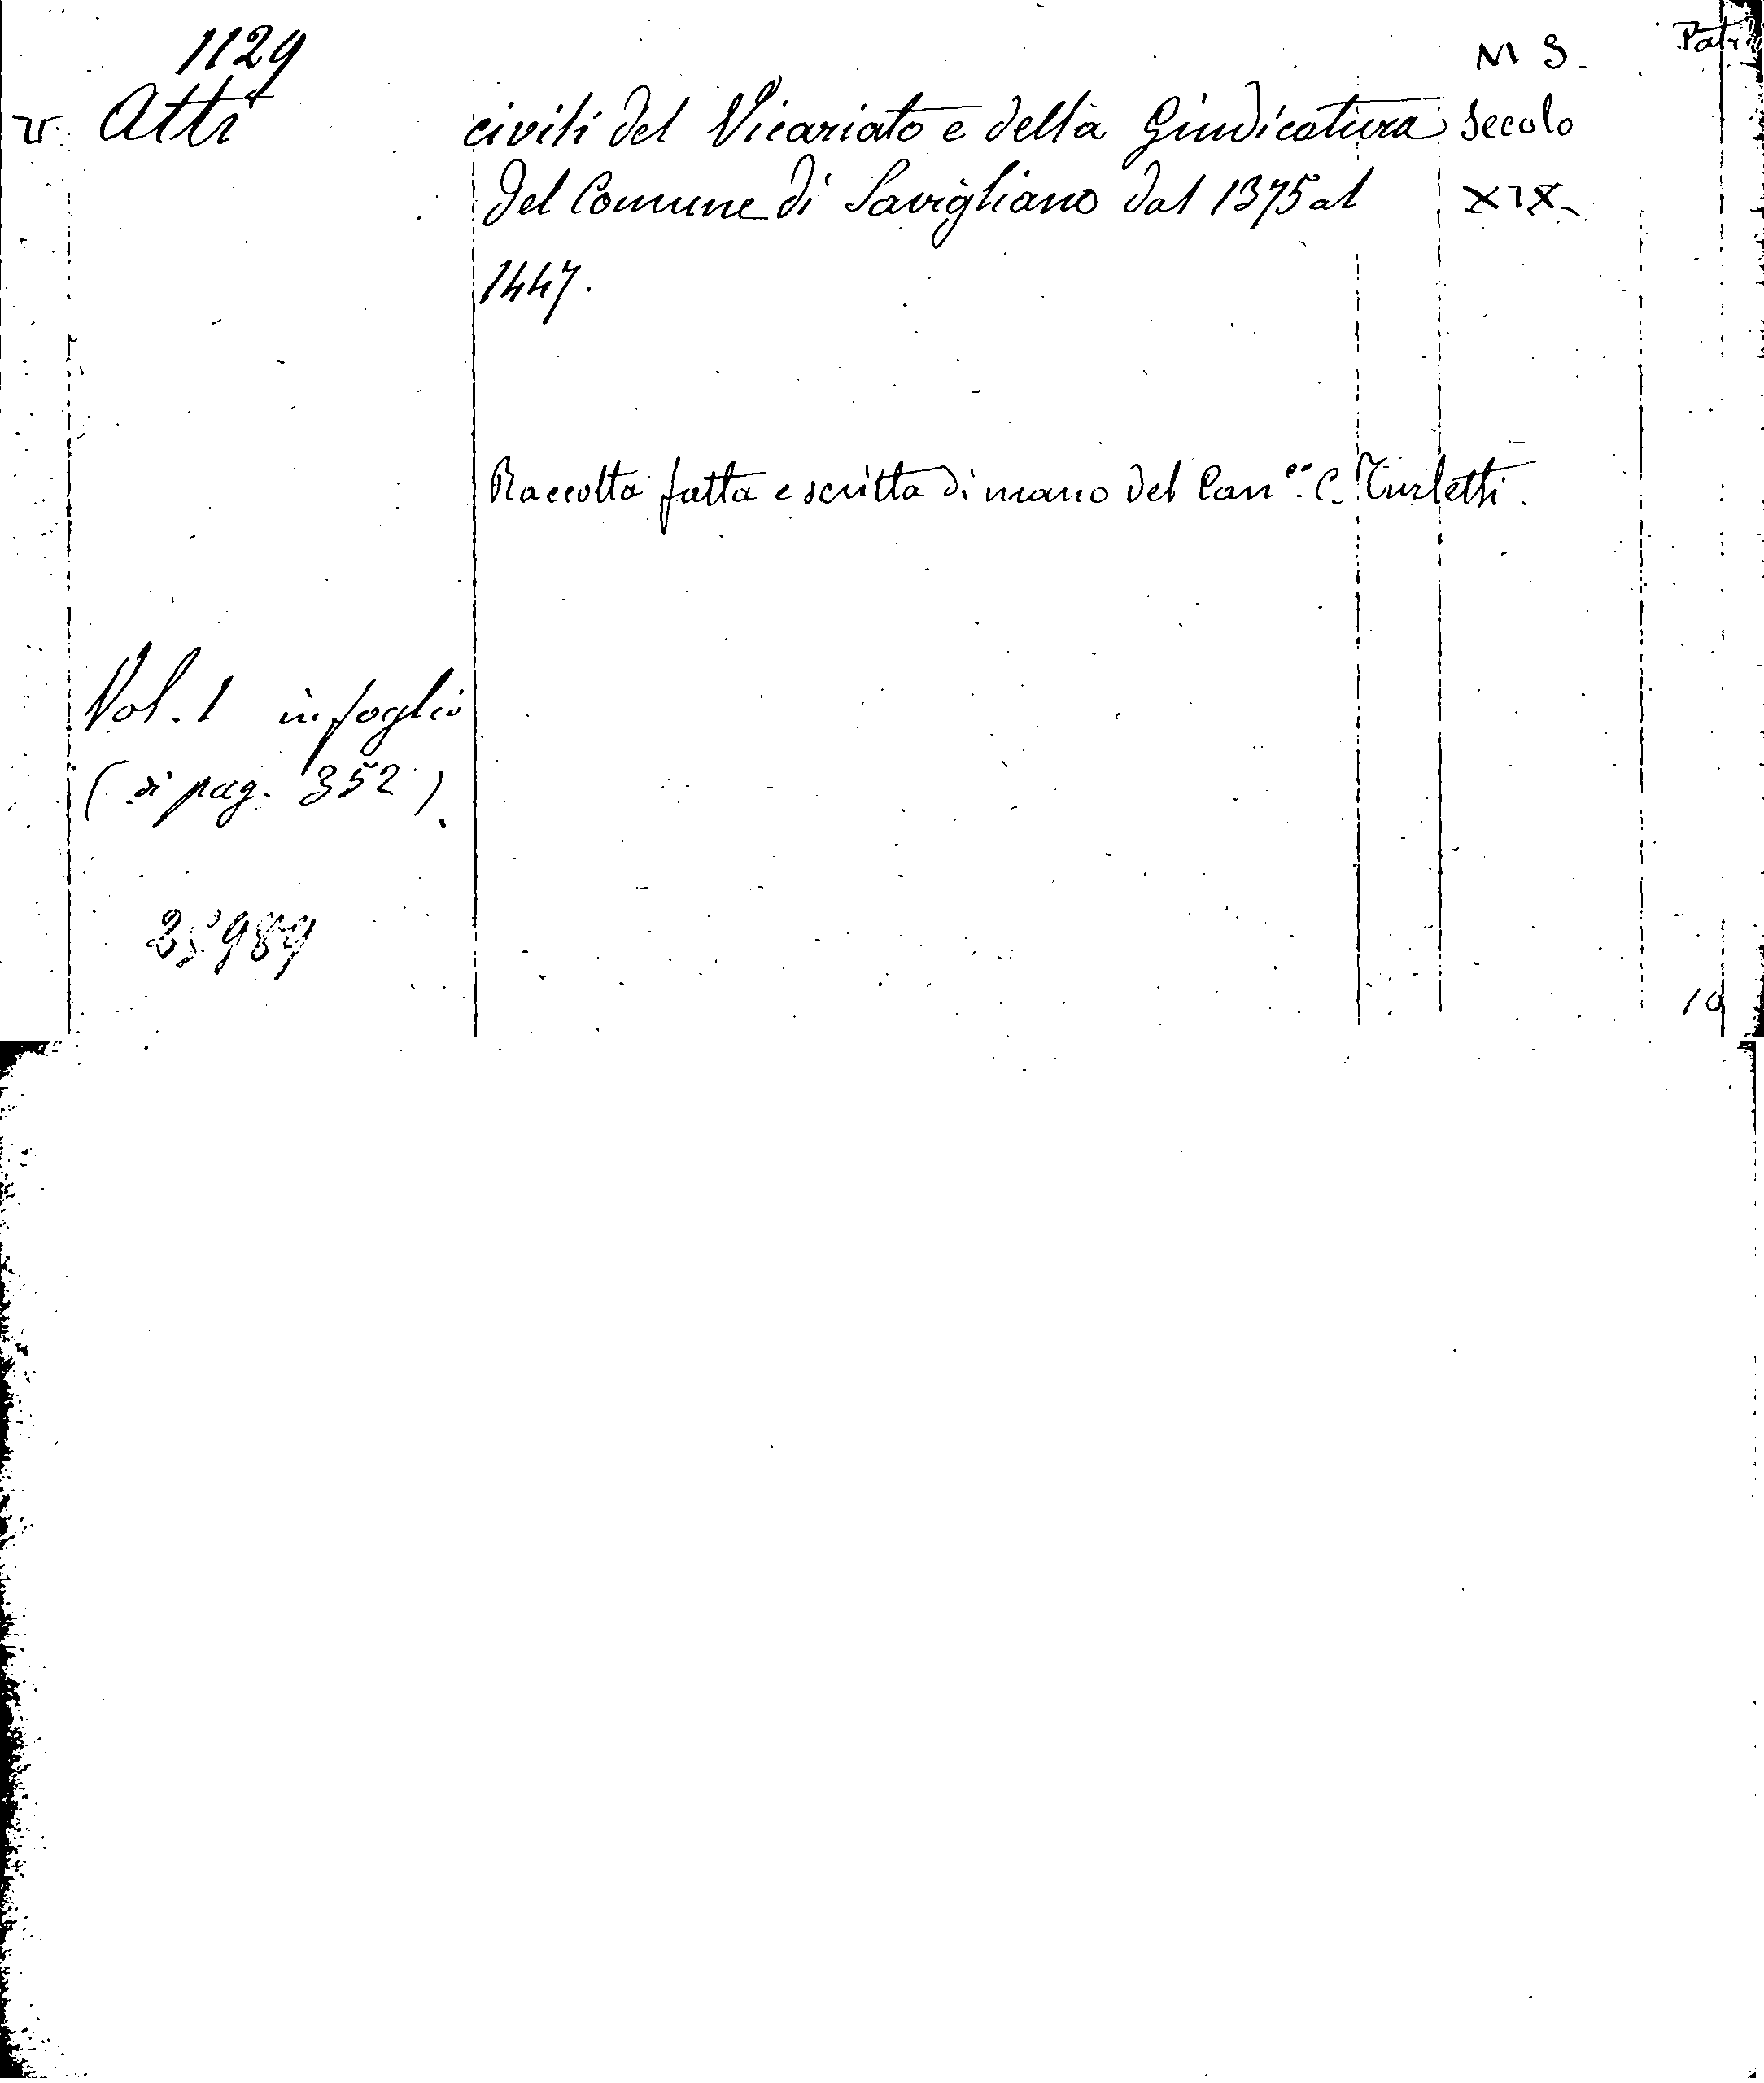 1129
M S.
v. Atti civili del Vicariato e della Giudicatura secolo
del Comune di Savigliano dal 1375 al XIX
1447.
Raccolta fatta e scritta di mano del Can.co C. Turletti.
Vol. 1 in foglio
(di pag. 352).
25989